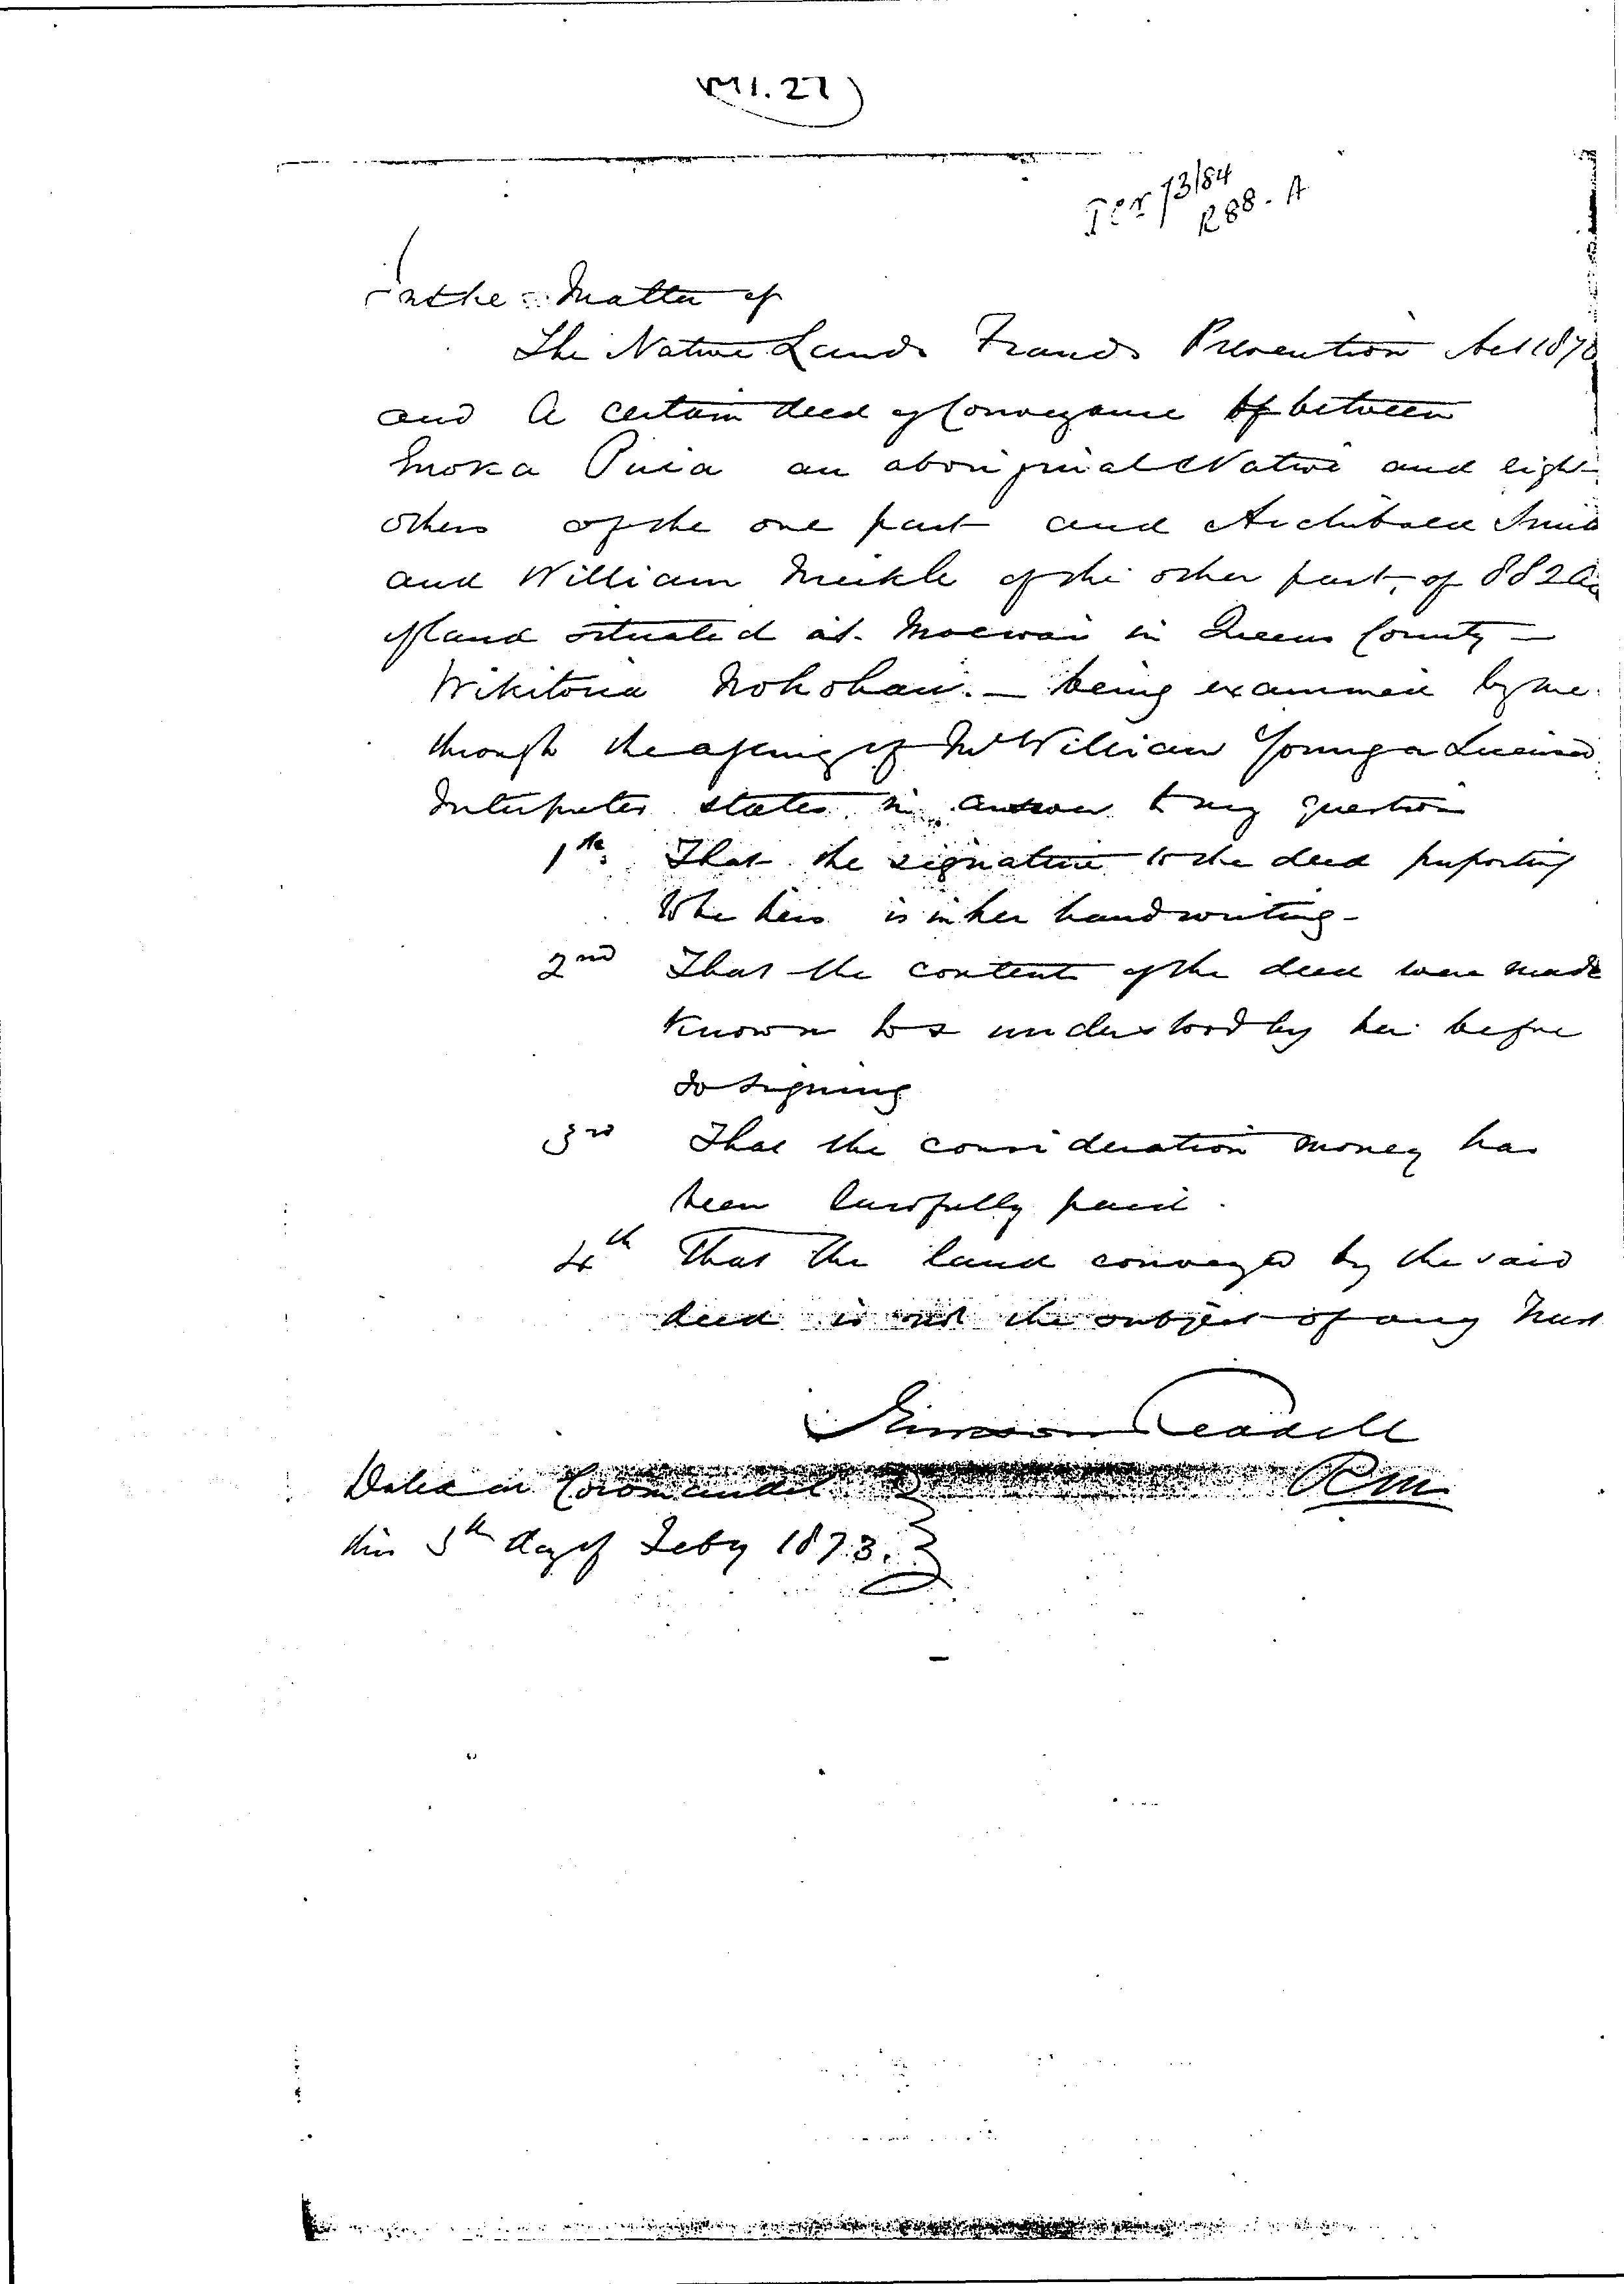 VM1.27
Ter 13/84
R88. A
In the Matter of
The Native Lands Frauds Prevention Act 1870
and A certain deed of Conveyance of between
an aboriginal Native and eight
others of the one part and Archibald
and William Meikle of the other part, of 882 Ac
of land situated at Moewai in Queens County —
Wikitoria being examined by me
through the agency of Mr William Young a Licensed
Interpreter states in answer to my question
1st That the signature to the deed purporting
to be hers is in her handwriting -
2nd That the contents of the deed were made
known to & understood by her before
so signing
3rd That the consideration money has
been lawfully paid.
4th That the land conveyed by the said
deed is not the subject of any trust
RM
Dated in Coromandel
this 5th day of Feby 1873.